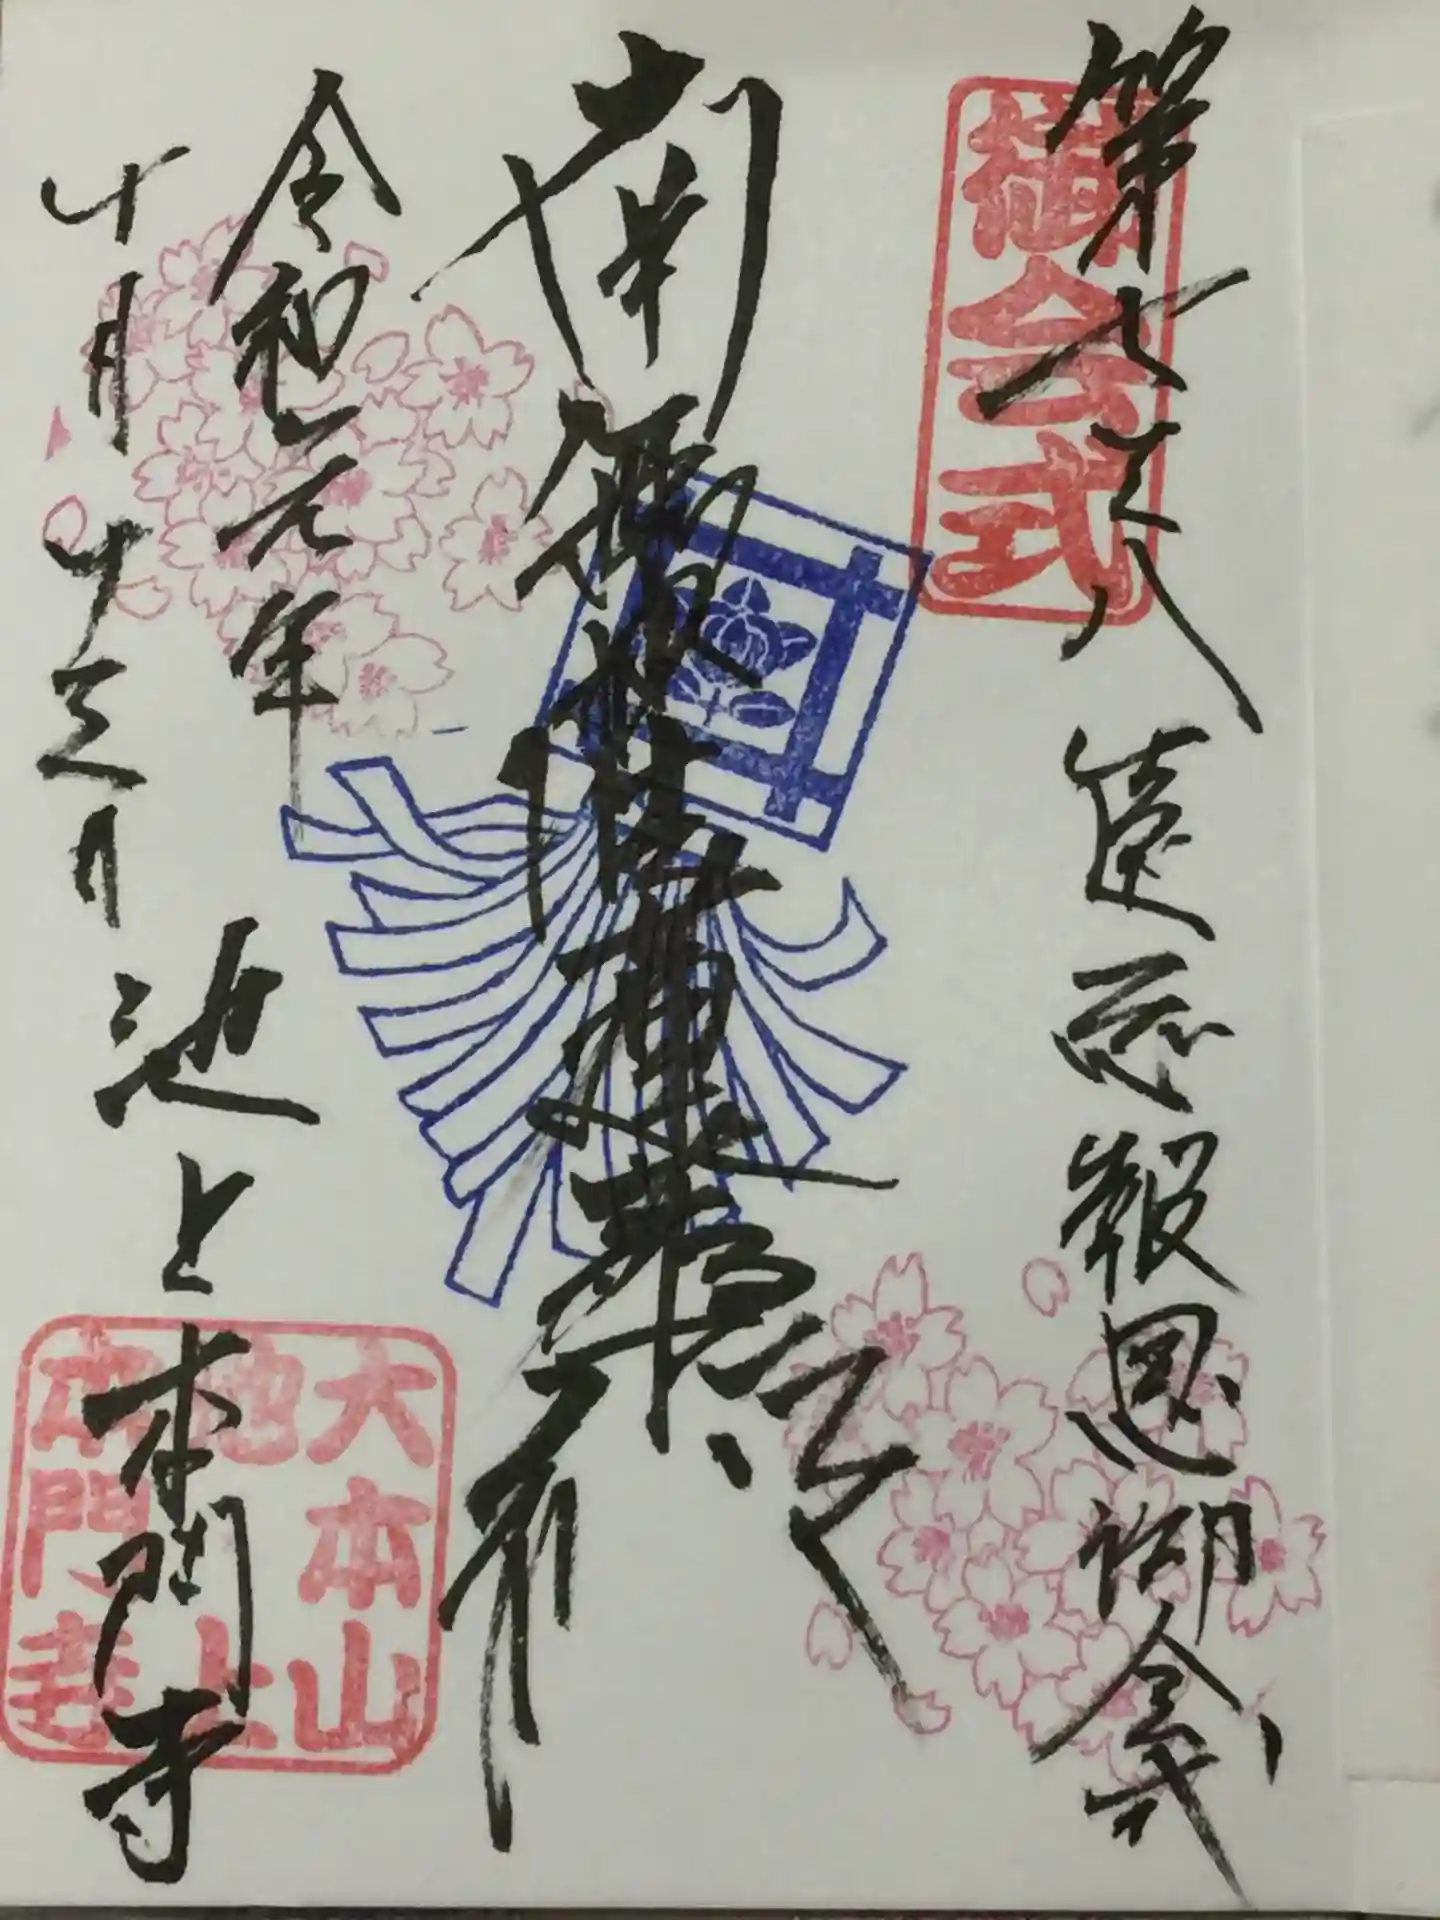 御会式
第七三八遠忌報恩御会式
南無妙法蓮華経
令和元年
十月十三日
池上本門寺
大本山
池上
本門寺